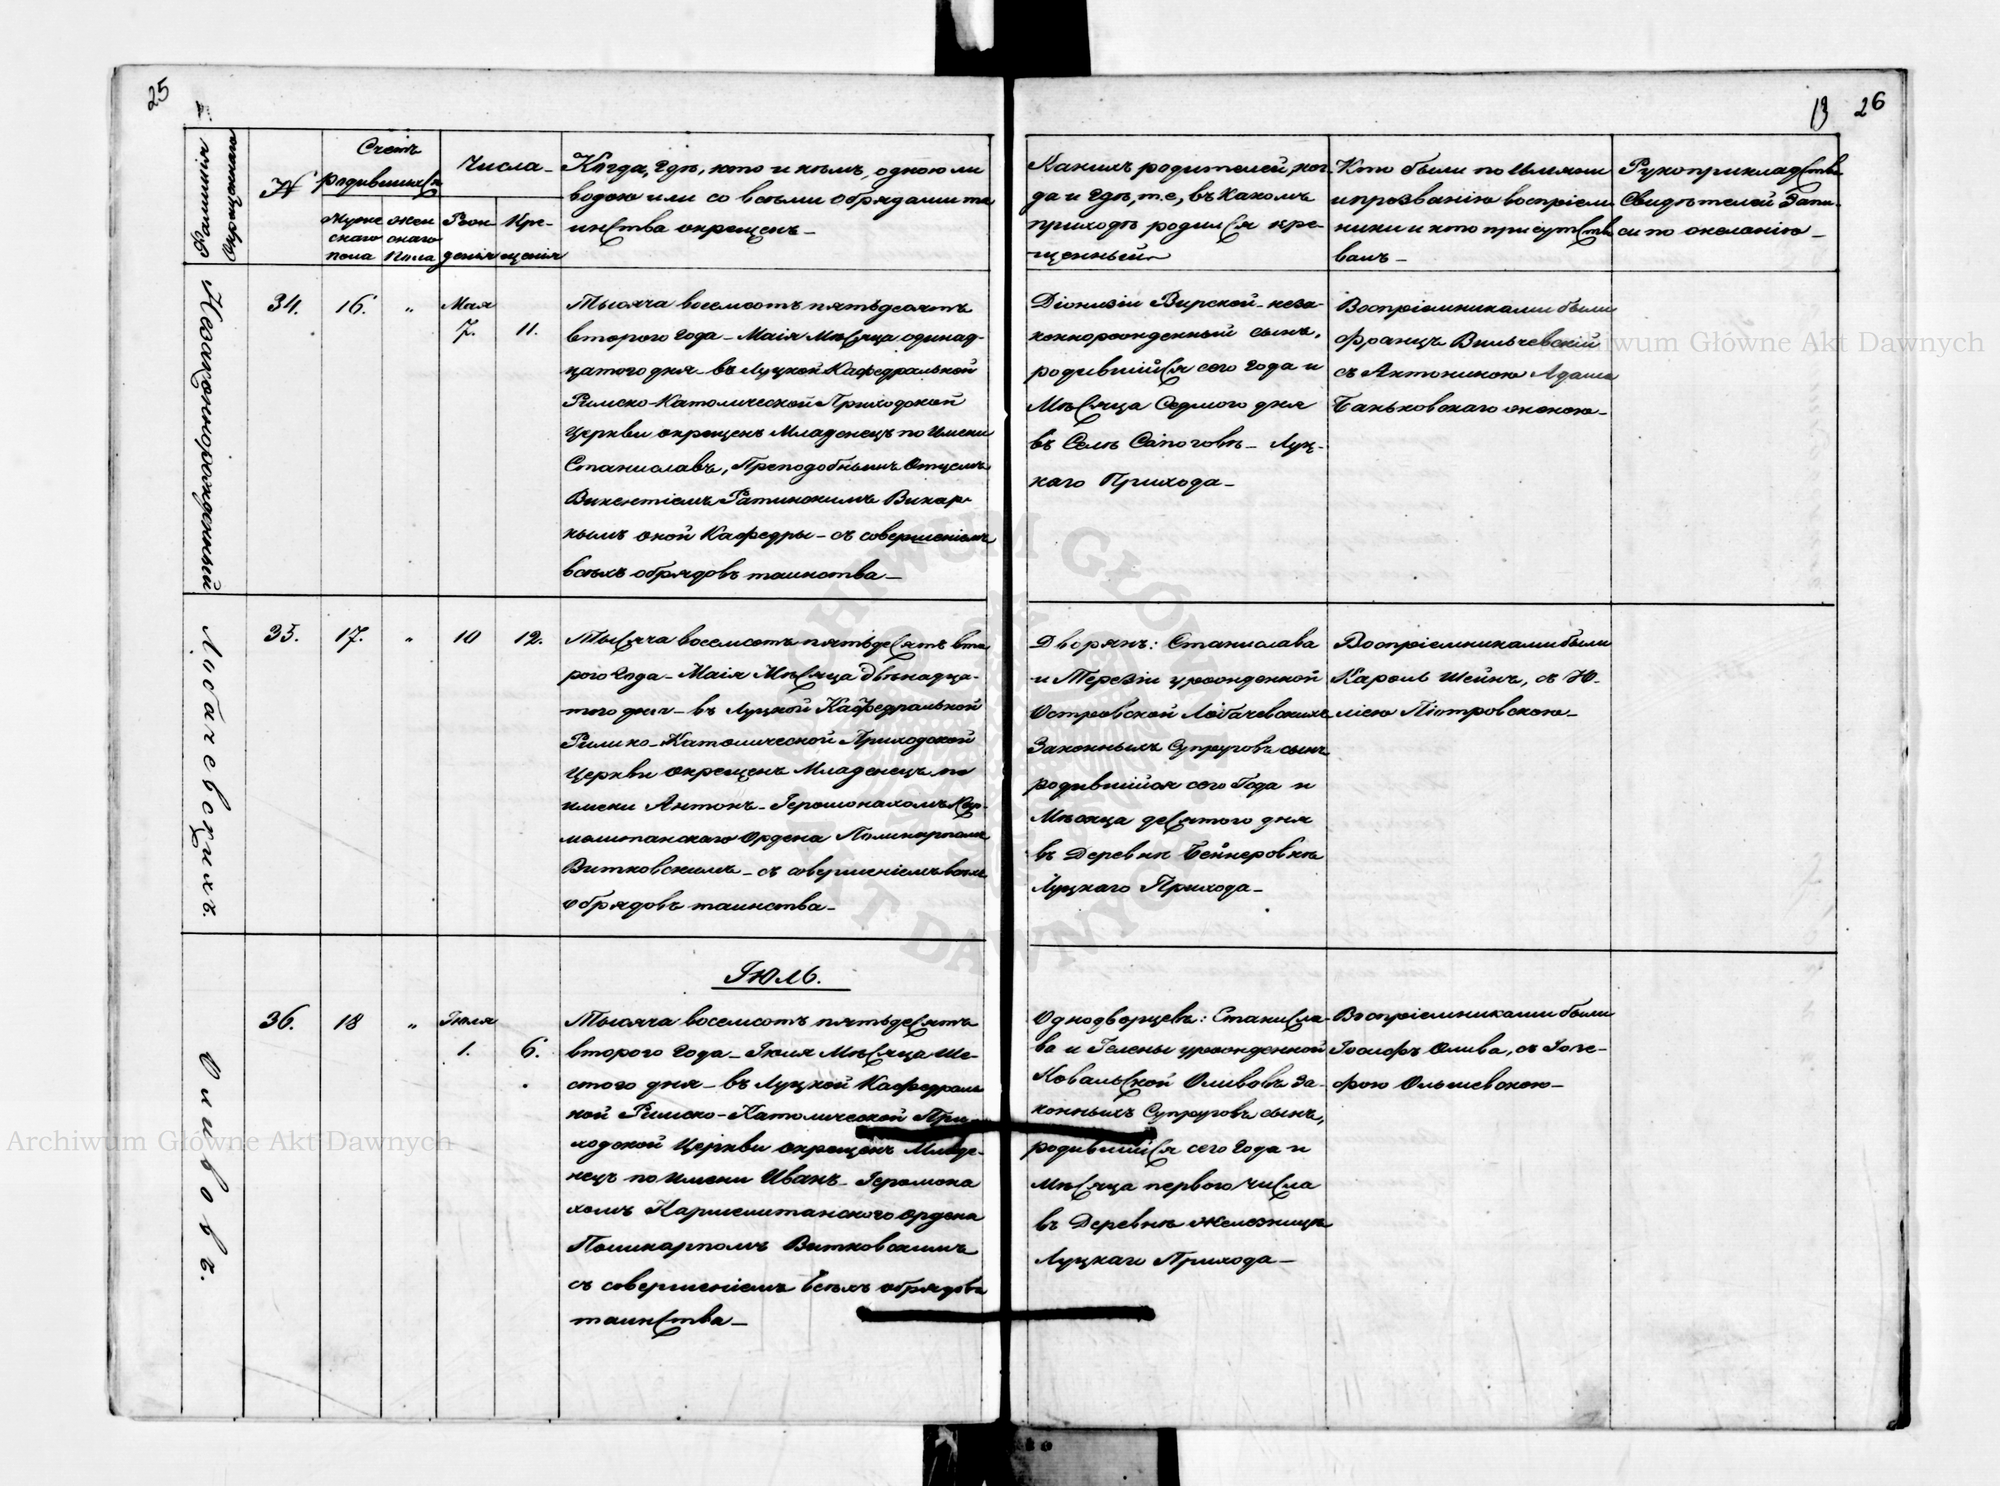 25
13 26
Фамилія
Окрещеннаго
№
Счетъ
родившихся
Муже
скаго
пола
Жен
скаго
Пола
Числа
Рож
денія
Кре-
щенія
Когда, гдѣ, кто и кѣмъ, одною ли
водою или со всѣми обрядами та
инства окрещенъ
Какихъ родителей, ког
да и гдѣ, т.е., въ какомъ
приходѣ родился кре-
щенный
Кто были по имяни
и прозванію воспріем
ники и кто присутств
валъ
Рукоприкладства
Свидѣтелей Запи-
си по желанію
Незаконнорожденный
34. 16. „ Мая
7. 11.
Тысяча восемсотъ пятьдесятъ
втораго года Маія Мѣсяца одинад-
цатого дня въ Луцкой Кафедральной
Римско-Католической Приходской
Церкви окрещенъ Младенецъ по имени
Станиславъ, Преподобнымъ Отцемъ
Викентіемъ Ратинскимъ Викар-
нымъ оной Кафедры съ совершеніемъ
всѣхъ обрядовъ таинства
Діонизіи Вирской неза-
коннорожденный сынъ,
родившійся сего года и
Мѣсяца Седмого дня
въ Селѣ Сапоговѣ Луц-
каго Прихода
Воспріемниками были
Францъ Вильчевскій
съ Антониною Адама
Баньковскаго женою
Лобачевскихъ.
35. 17. „ 10 12.
Тысяча восемсотъ пятьдесятъ вто
рого Года Маія Мѣсяца двѣнадца-
того дня въ Луцкой Кафедральной
Римско-Католической Приходской
Церкви окрещенъ Младенецъ по
имени Антонъ Іеромонахомъ Кар-
мелитанскаго Ордена Поликарпомъ
Витковскимъ съ совершеніемъ всѣхъ
обрядовъ таинства
Дворянъ: Станислава
и Терезіи урожденной
Островской Лобачевскихъ
Законныхъ Супруговъ сынъ
родившійся сего Года и
Мѣсяца десятого дня
въ Деревнѣ Бейнеровкѣ
Луцкаго Прихода
Воспріемниками были
Кароль Шейнъ, съ Ю-
ліею Піотровскою
Оливовъ.
Іюль.
36. 18 „ Іюля
1. 6.
Тысяча восемсотъ пятьдесятъ
второго года Іюля Мѣсяца Ше-
стого дня въ Луцкой Кафедраль
ной Римско-Католической При-
ходской Церкви окрещенъ Младе-
нецъ по имени Иванъ Іеромона
хомъ Кармелитанского Ордена
Поликарпомъ Витковскимъ
съ совершеніемъ всѣхъ обрядовъ
таинства
Однодворцевъ: Станисла-
ва и Гелены урожденной
Ковальской Оливовъ За-
конныхъ Супруговъ сынъ,
родившійся сего Года и
Мѣсяца первого числа
въ Деревнѣ Железницѣ
Луцкаго Прихода
Воспріемниками были
Іосифъ Олива, съ Іозе-
фою Ольшевскою
Archiwum Główne Akt Dawnych
Archiwum Główne Akt Dawnych
ARCHIWUM GŁÓWNE AKT DAWNYCH